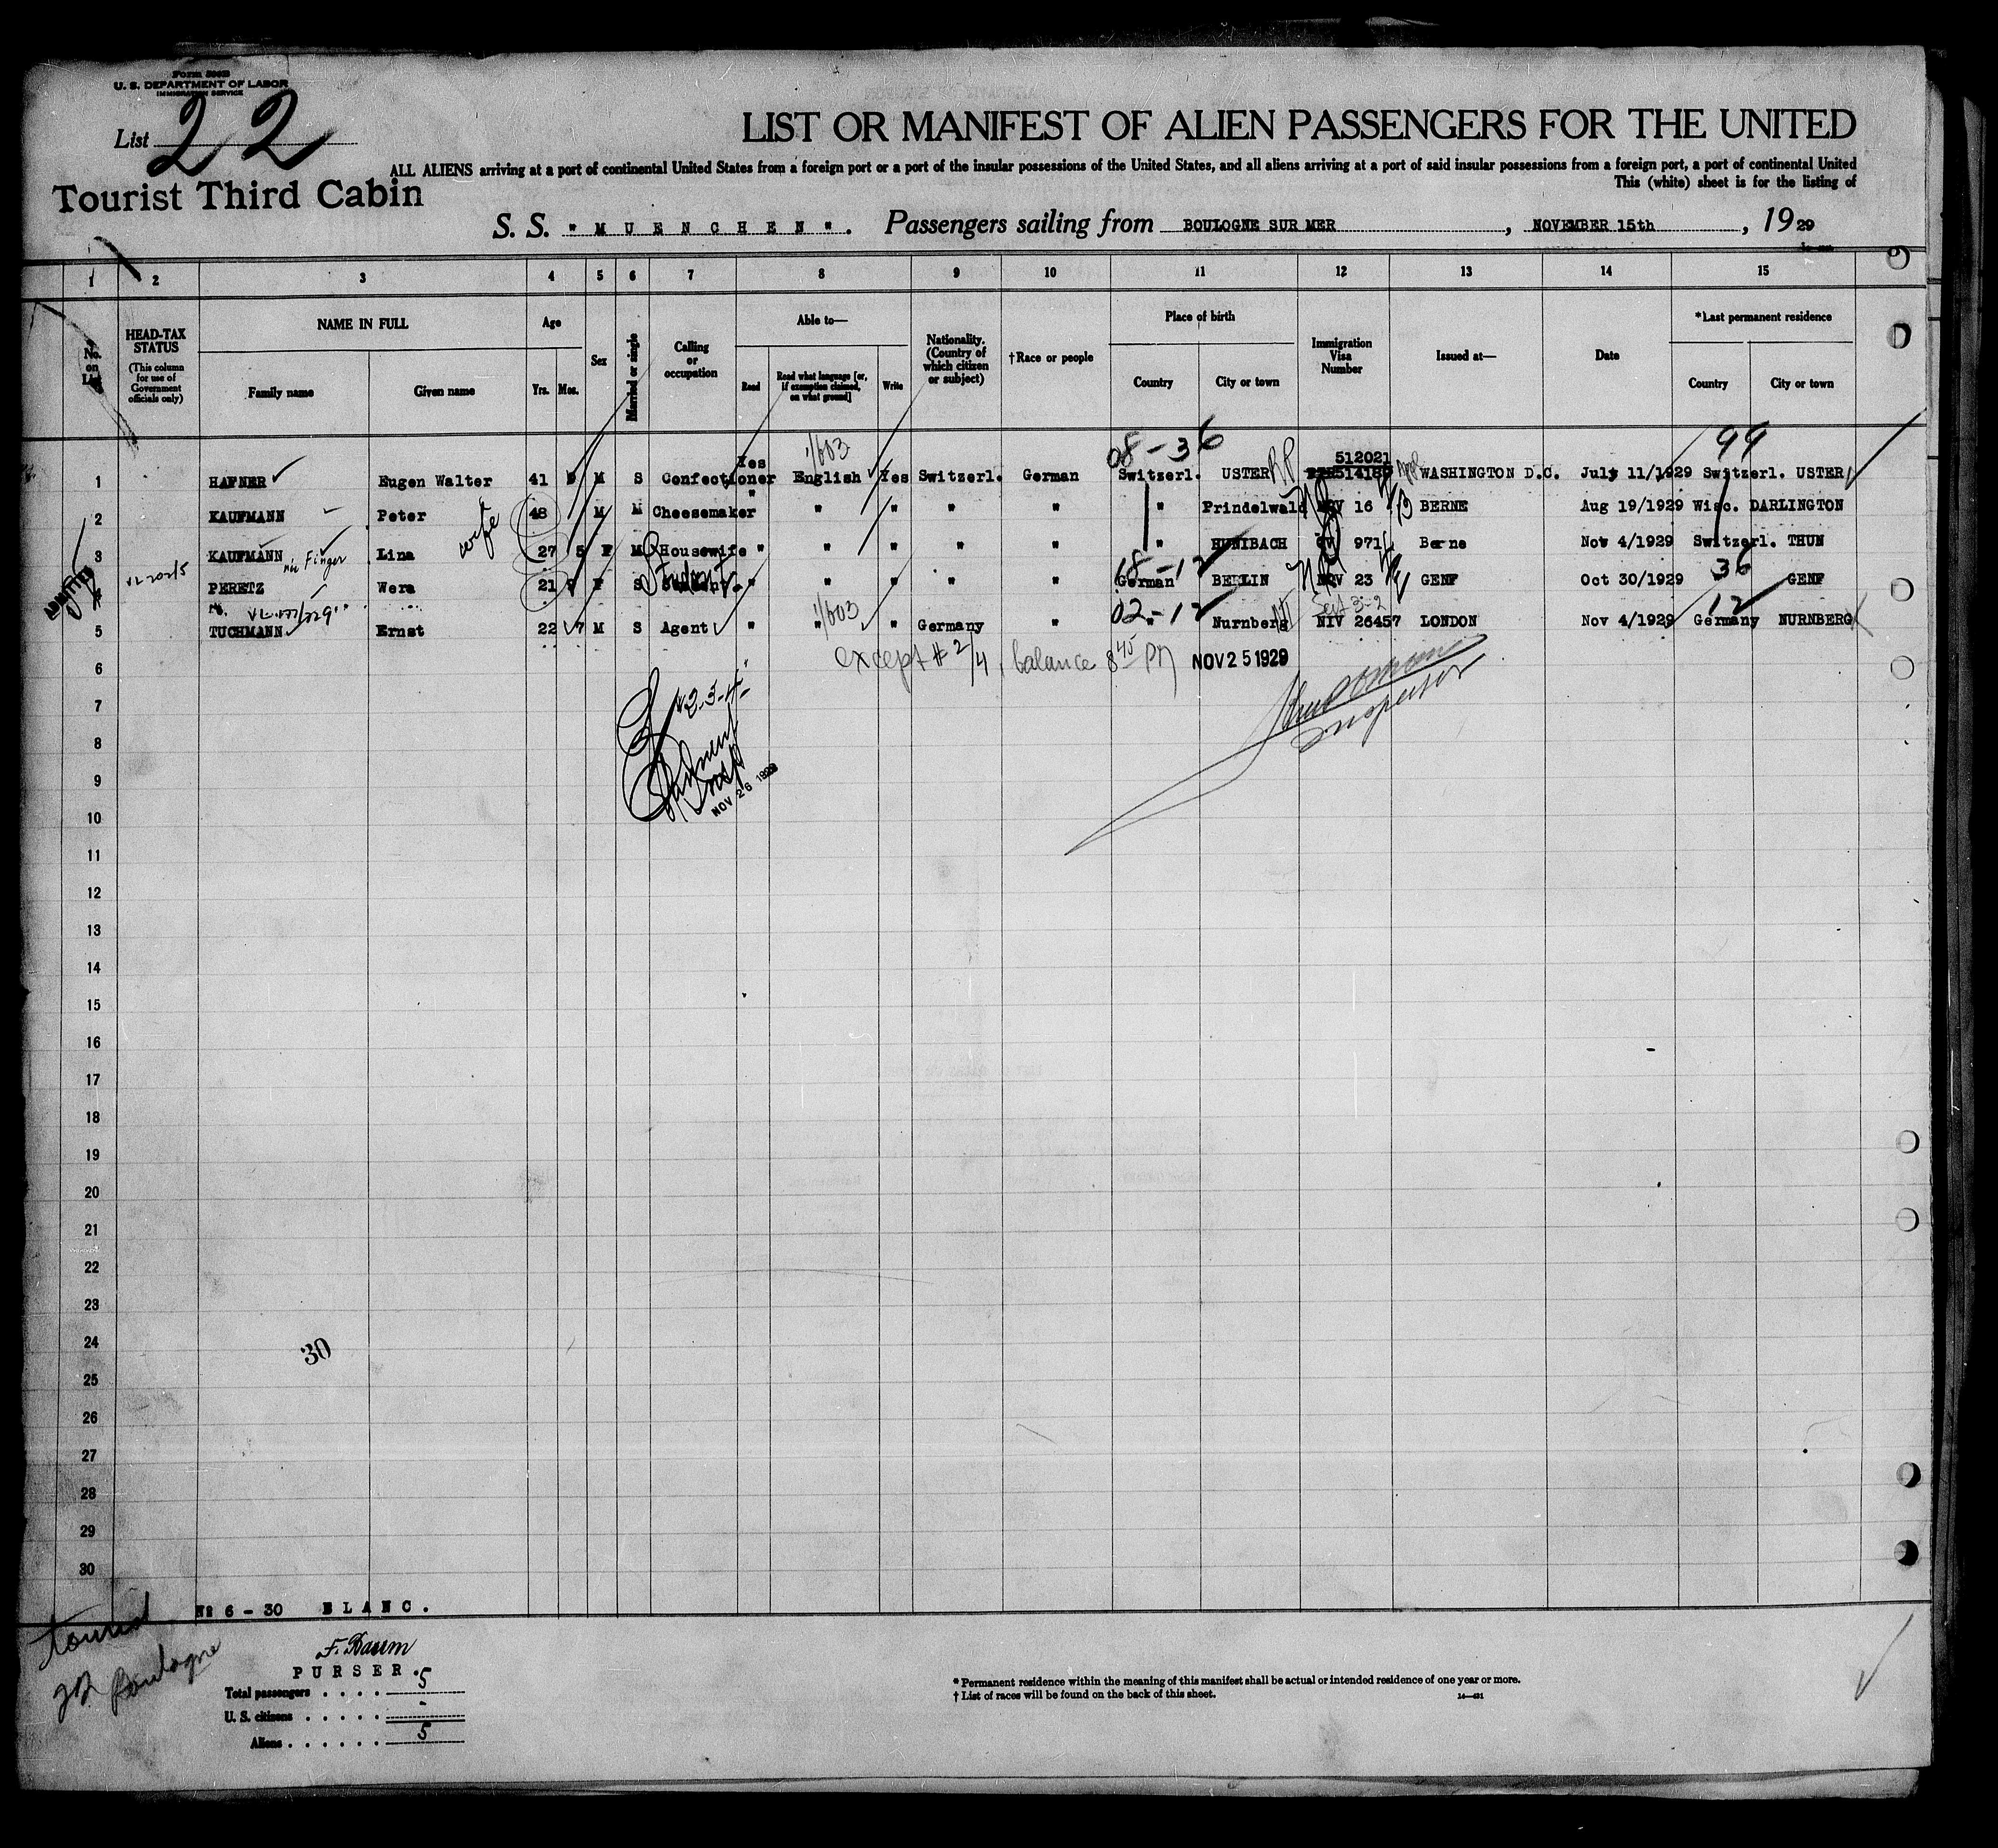 Form 500B
U. S. DEPARTMENT OF LABOR
IMMIGRATION SERVICE
List 22
LIST OR MANIFEST OF ALIEN PASSENGERS FOR THE UNITED
ALL ALIENS arriving at a port of continental United States from a foreign port or a port of the insular possessions of the United States, and all aliens arriving at a port of said insular possessions from a foreign port, a port of continental United
This (white) sheet is for the listing of
Tourist Third Cabin
S. S. "MUENCHEN". Passengers sailing from BOULOGNE SUR MER, NOVEMBER 15th, 1929
1 2 3 4 5 6 7 8 9 10 11 12 13 14 15
No. on List
HEAD-TAX STATUS (This column for use of Government officials only)
NAME IN FULL Family name Given name
Age Yrs. Mos.
Sex
Married or single
Calling or occupation
Able to— Read Read what language [or, if exemption claimed, on what ground] Write
Nationality. (Country of which citizen or subject)
†Race or people
Place of birth Country City or town
Immigration Visa Number
Issued at—
Date
*Last permanent residence Country City or town
08-36 99
1/603
1 HAFNER Eugen Walter 41 M S Confectioner Yes English Yes Switzerl. German Switzerl. USTER RP 512021 WASHINGTON D.C. July 11/1929 Switzerl. USTER
2 KAUFMANN Peter 48 M M Cheesemaker " " " " " " Prindelwald NQV 16 BERNE Aug 19/1929 Wisc. DARLINGTON
wife
3 KAUFMANN née Finger Lina 27 5 F M Housewife " " " " " " HUNIBACH QV 971 Berne Nov 4/1929 Switzerl. THUN
ADMITTED
18-12 36
4 PERETZ Wera 21 F S Student " " " " " German BERLIN NQV 23 GENF Oct 30/1929 " GENF
1/603 02-12 12
5 TUCHMANN Ernst 22 7 M S Agent " " " Germany " " Nurnberg NIV 26457 LONDON Nov 4/1929 Germany NURNBERG
6 except #2/4, balance 8 45 PM NOV 25 1929
7
Inspector
8
9
NOV 26 1929
10
11
12
13
14
15
16
17
18
19
20
21
22
23
24
30
25
26
27
28
29
30
Nº 6 - 30 BLANC.
tourist
22 Boulogne
PURSER.
Total passengers . . . . 5
U. S. citizens . . . . . -
Aliens . . . . . . 5
* Permanent residence within the meaning of this manifest shall be actual or intended residence of one year or more.
† List of races will be found on the back of this sheet. 14—421